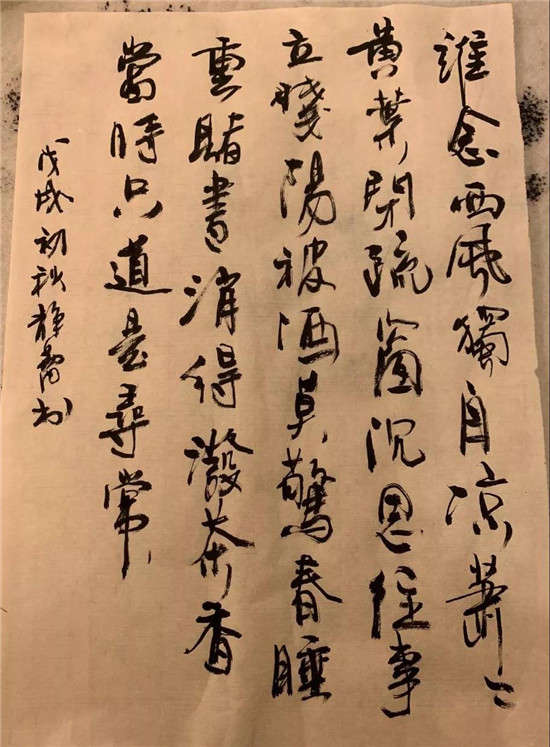 誰念西風獨自凉蕭〻
黄葉閉疏窗沉思往事
立殘陽被酒莫驚春睡
重賭書消得潑茶香
當時只道是尋常
戊戌初秋静